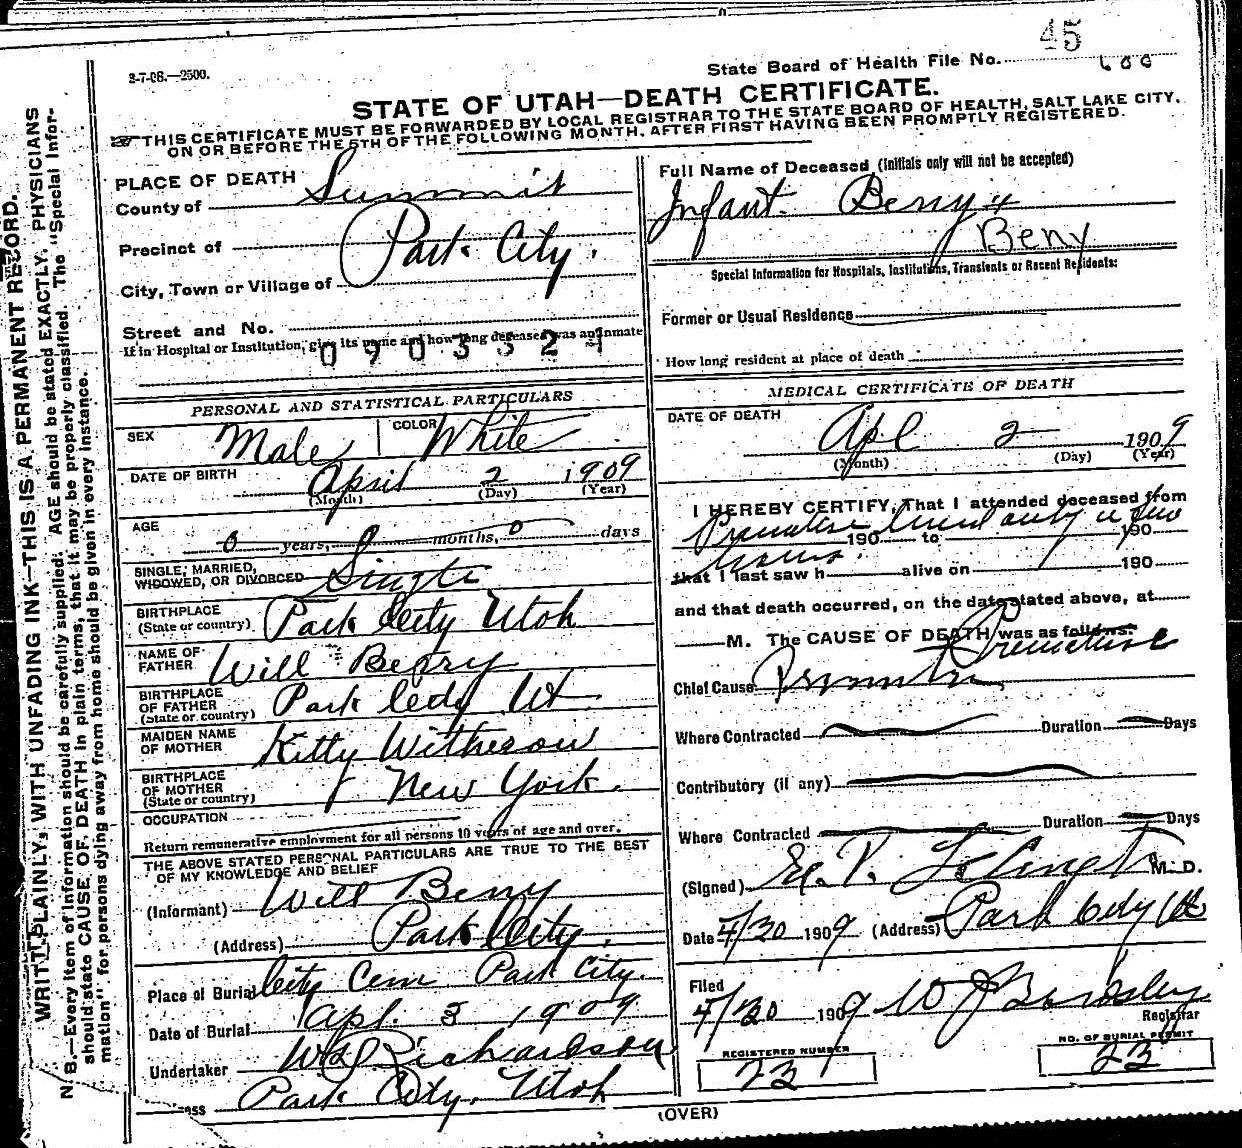 45
3-7-08.—2500.
State Board of Health File No. 600
STATE OF UTAH—DEATH CERTIFICATE.
THIS CERTIFICATE MUST BE FORWARDED BY LOCAL REGISTRAR TO THE STATE BOARD OF HEALTH, SALT LAKE CITY,
ON OR BEFORE THE 5TH OF THE FOLLOWING MONTH, AFTER FIRST HAVING BEEN PROMPTLY REGISTERED.
WRITE PLAINLY, WITH UNFADING INK—THIS IS A PERMANENT RECORD.
N. B.—Every item of information should be carefully supplied. AGE should be stated EXACTLY. PHYSICIANS
should state CAUSE OF DEATH in plain terms, that it may be properly classified. The "Special Infor-
mation" for persons dying away from home should be given in every instance.
PLACE OF DEATH
County of Summit
Precinct of
Park City.
City, Town or Village of
Street and No.
If in Hospital or Institution, give its name and how long deceased was an inmate
0903321
PERSONAL AND STATISTICAL PARTICULARS
SEX Male COLOR White
DATE OF BIRTH April 2 1909
(Month) (Day) (Year)
AGE 0 years, 0 months, 0 days
SINGLE, MARRIED,
WIDOWED, OR DIVORCED Single
BIRTHPLACE
(State or country) Park City Utah
NAME OF
FATHER Will Berry
BIRTHPLACE
OF FATHER
(State or country) Park City Ut
MAIDEN NAME
OF MOTHER Kitty Witherow
BIRTHPLACE
OF MOTHER
(State or country) New York.
OCCUPATION
Return remunerative employment for all persons 10 years of age and over.
THE ABOVE STATED PERSONAL PARTICULARS ARE TRUE TO THE BEST
OF MY KNOWLEDGE AND BELIEF
(Informant) Will Beny
(Address) Park City.
Place of Burial City Cem Park City.
Date of Burial Apl. 3 1909
Undertaker Richardson
Park City, Utah
Full Name of Deceased (Initials only will not be accepted)
Infant Beny
Beny
Special Information for Hospitals, Institutions, Transients or Recent Residents:
Former or Usual Residence
How long resident at place of death
MEDICAL CERTIFICATE OF DEATH
DATE OF DEATH Apl 2 1909
(Month) (Day) (Year)
I HEREBY CERTIFY, That I attended deceased from
Premature lived only a few
190 to 190
hours.
that I last saw h alive on 190
and that death occurred, on the date stated above, at
M. The CAUSE OF DEATH was as follows:
Premature
Chief Cause
Where Contracted Duration Days
Contributory (if any)
Where Contracted Duration Days
(Signed) M. D.
Date 4/30 1909 (Address) Park City Ut
Filed
4/30 1909
Registrar
REGISTERED NUMBER
23
NO. OF BURIAL PERMIT
23
(OVER)